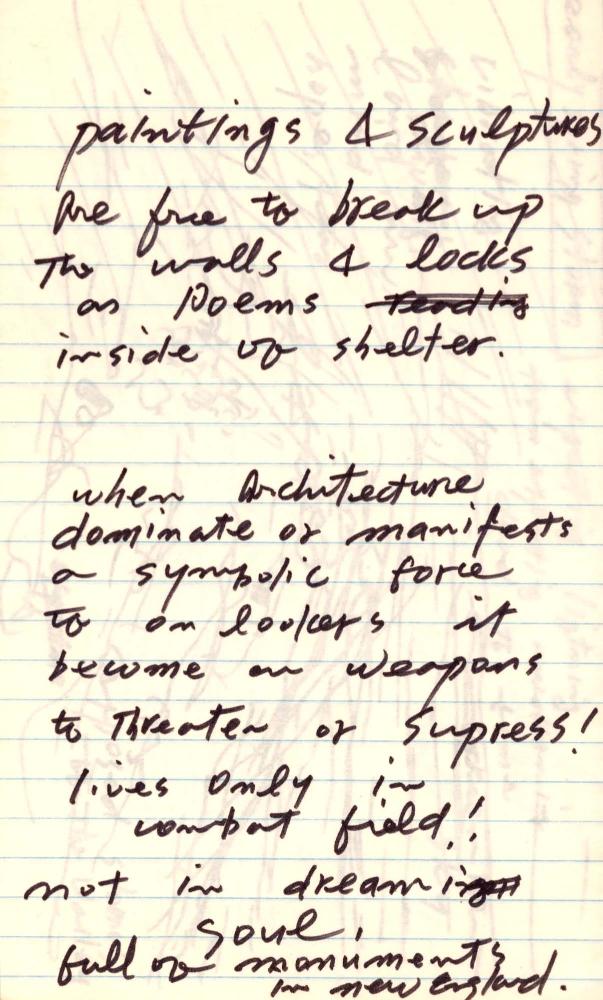 paintings & sculptures
Are free to break up
The walls & locks
as Poems reading
inside of shelter.
when Architecture
dominate or manifests
a symbolic force
to on lookers it
become an weapons
to Threaten or Supress!
lives only in
combat field!!
not in dreaming
soul,
full of monuments
in new england.